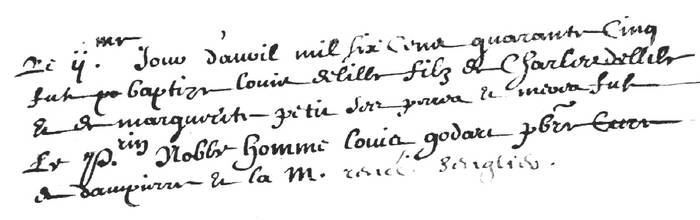 Le ij.me Jour d'avril mil six cens quarante Cinq
fut baptizé Louis delille filz de Charles dellile
& de margueritte petit ses perea & merea fut
Le P.rin Noble homme Louis godart pbre Cure
de dampierre & la M.